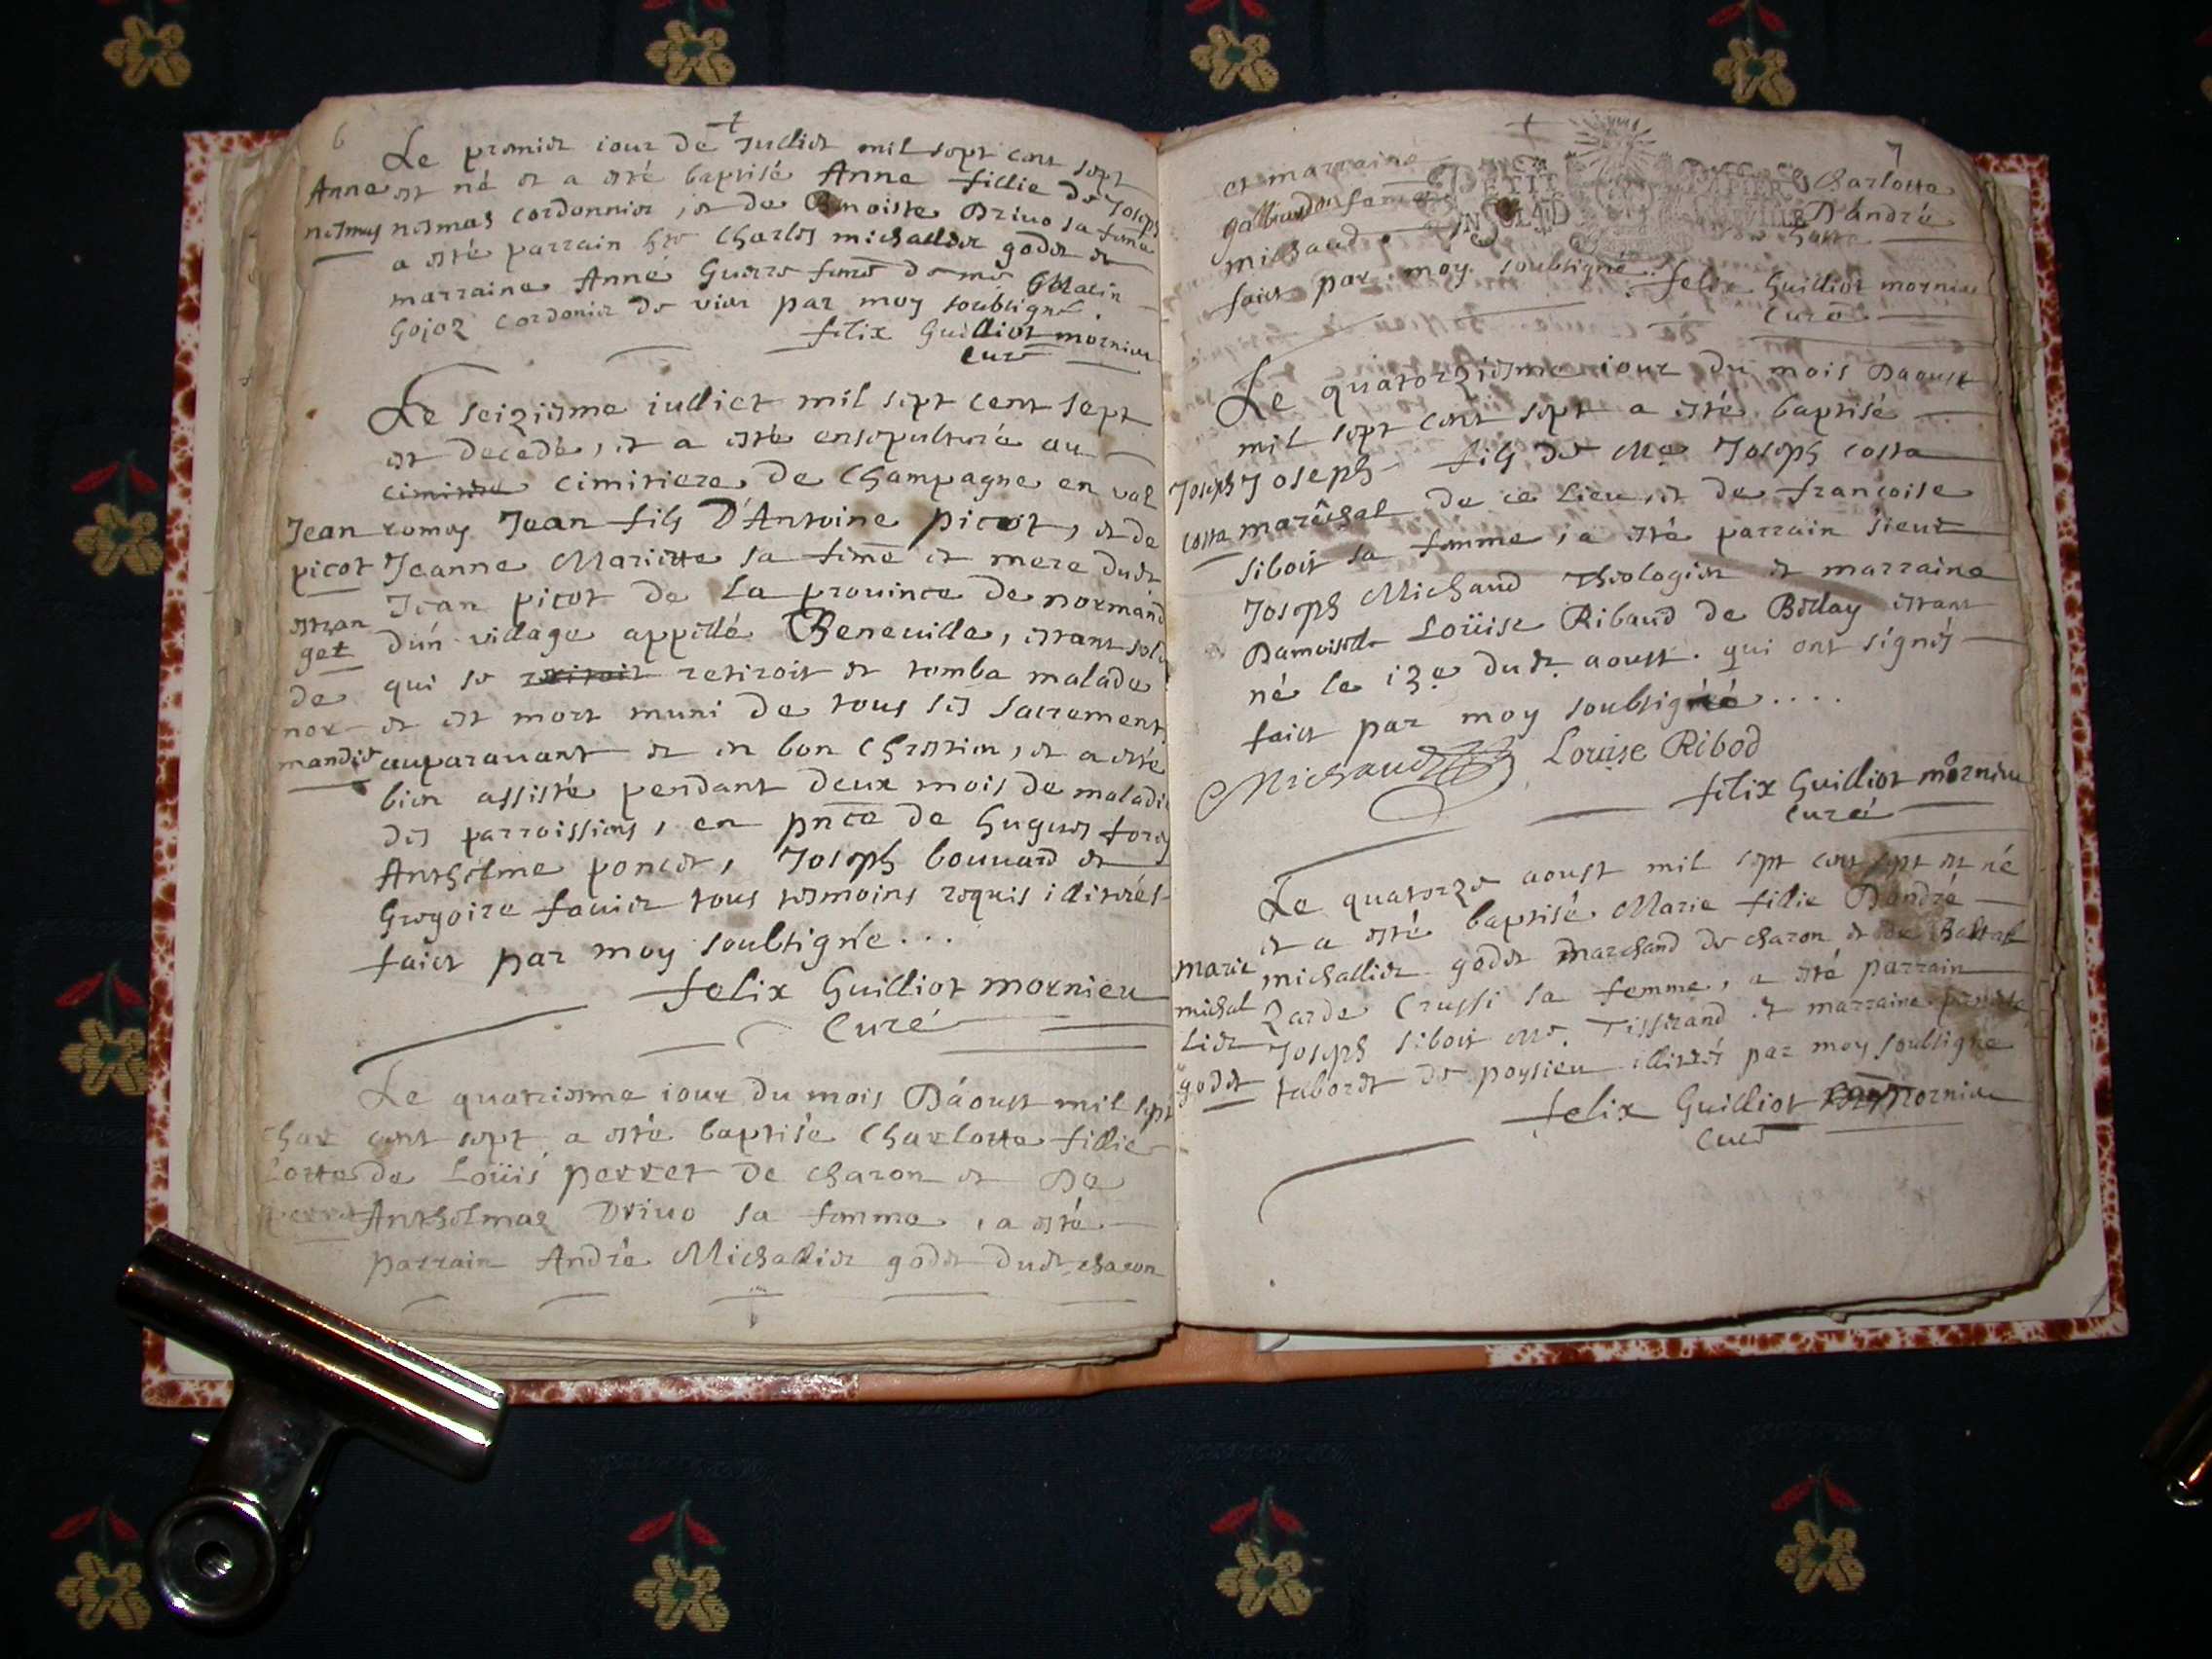 6
Le premier iour de Julliet mil sept cent sept
Anne est né et a esté baptisé Anne fillie de Joseph
nesmes nesmas cordonnier, et de Benoiste Driuo sa feme
a esté parrain hte Charles michallier godet et
marraine Anne Guerre feme de me
Gojoz cordonier de vieu par moy soubsigné.
felix Guilliot mornieu
Curé
Le seiziesme iulliet mil sept cent sept
est decedé, et a esté ensepulturé au
cimitiere de Champagne en val
Jean romey Jean fils D'Antoine picot, et de
picot Jeanne Mariette sa feme et mere dudt
Jean picot de la prouince de normand
estran
get d'un village appellé Beneuille, estant solda
de qui se retiroit et tomba malade
nor et est mort muni de tous ses sacrements
mandie auparauant et en bon Chrestien, et a esté
bien assisté pendant deux mois de maladie
des parroissiens, en pnce de hugues forey
Anthelme poncet, Joseph bouuard et
Gregoire fauier tous tesmoins requis illiterés
faict par moy soubsigné...
felix Guilliot mornieu
Curé
Le quatriesme iour du mois D'áoust mil sept
Char cent sept a esté baptisée Charlotte fillie
lotte de Loüis perret de charon et De
perret Anthelmaz Driuo sa femme, a esté
parrain André Michallier godet dudt charon
7
et marraine Charlotte
galliardon feme D'andré
michaud
PETIT PAPIER
faict par moy soubsigné. felix Guilliot mornieu
Curé
Le quatorziesme iour du mois Daoust
mil sept cent sept a esté baptisé
Joseph Joseph fils de Me Joseph costa
costa maréchal de ce lieu, et de francoise
siboit sa femme, a esté parrain sieur
Joseph Michaud Theologien et marraine
Damoiselle Loüise Ribaud de Bellay estant
né le 13e dudt aoust. qui ont signés
faict par moy soubsigné....
Michaud Louise Ribod
felix Guilliot mornieu
Curé
Le quatorze aoust mil sept cent sept est né
et a esté baptisé Marie fillie D'andré
marie michallier godet marchand de charon et de Baltaz
michal zarde Crussi sa femme, a esté parrain
lier Joseph siboit Me. Tisserand et marraine
godet tabordet de poysieu illiterés par moy soubsigné
felix Guilliot mornieu
Curé